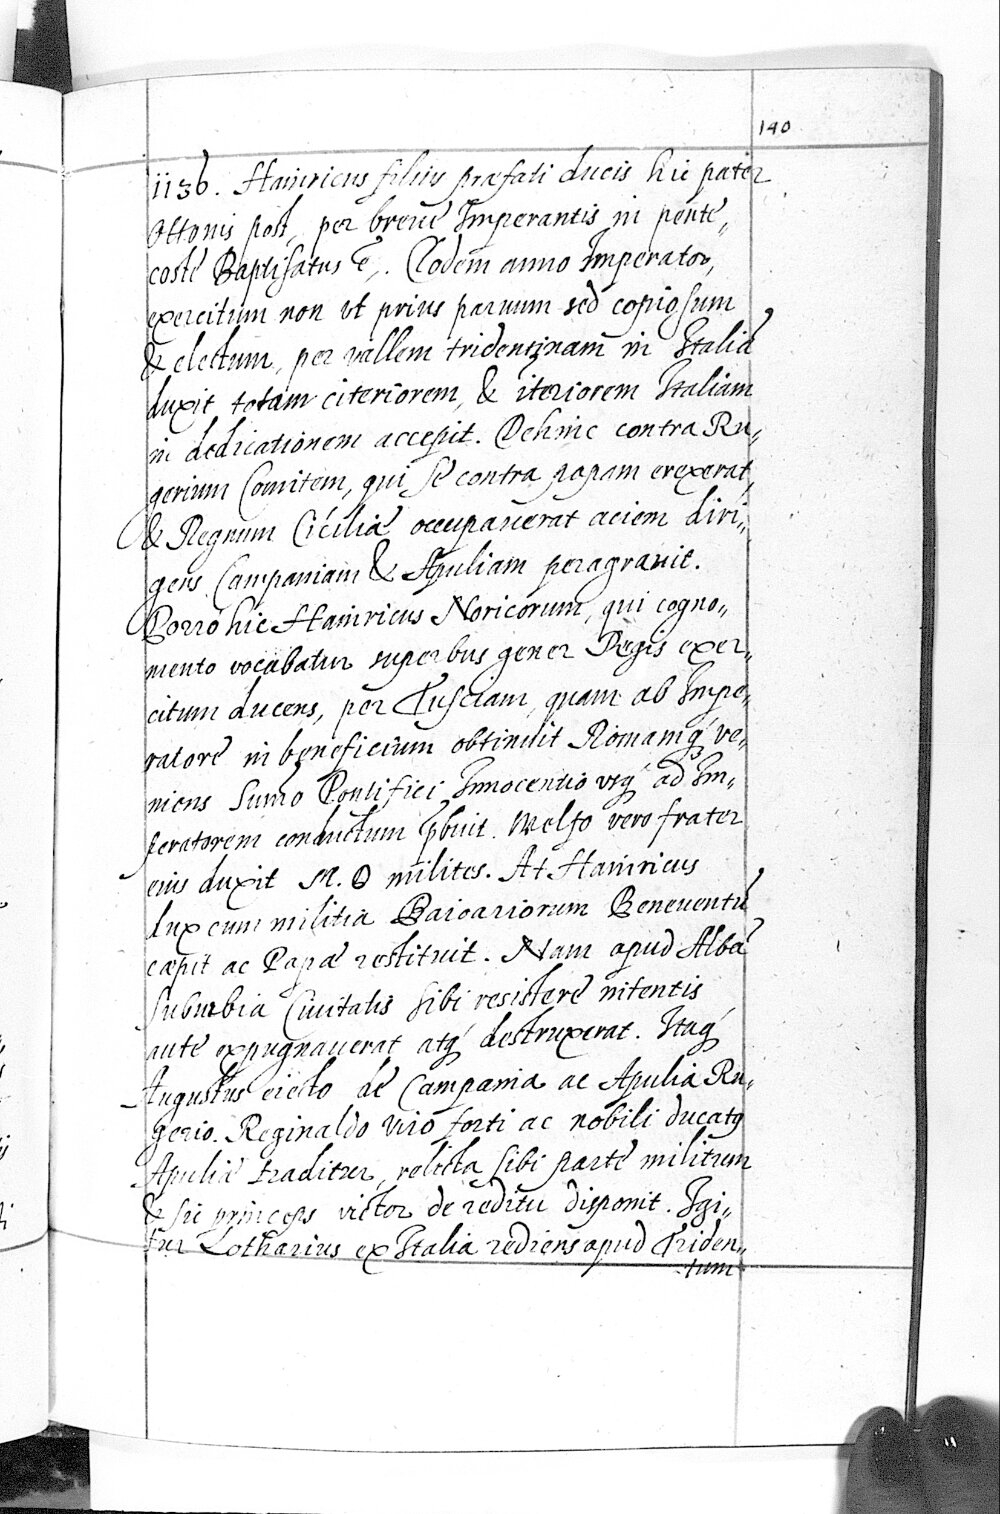 140
1136. Hainricus filius præfati ducis hic pater
Ottonis post, per breuē Imperantis in pente„
costē Baptisatus ē,. Eodem anno Imperator,
exercitum non vt prius paruum sed copiosum
& electum, per vallem tridentinam in Italiā
duxit totam citeriorem, & iteriorem Italiam
in dedicationem accepit. Dehinc contra Ru„
gerium Comitem, qui se contra papam erexerat,
& Regnum Ciciliæ occupauerat aciem diri„
gens Campaniam & Apuliam peragrauit.
Porro hic Hainricus Noricorum, qui cogno„
mento vocabatur superbus gener Regis exer„
citum ducens, per Tusciam, quam ab Impe„
ratore in beneficium obtinuit Romamq́ ve„
niens Sumō Pontifici Innocentio vsq́ ad Im„
peratorem conductum p̄buit. Welfo vero frater
eius duxit M. D milites. At Hainricus
dux cum militia Baioariorum Beneuentū
cæpit ac Papæ restituit. Nam apud Albā
suburbia Ciuitatis sibi resistere nitentis
ante expugnauerat atq́ destruxerat. Itaq́
Augustus eiecto de Campania ac Apulia Ru„
gerio. Reginaldo viro forti ac nobili ducatq
Apuliæ traditur, relicta sibi parte militum
& sic princeps victor de reditu disponit. Igi„
tur Lotharius ex Italia rediens apud Triden„
tum